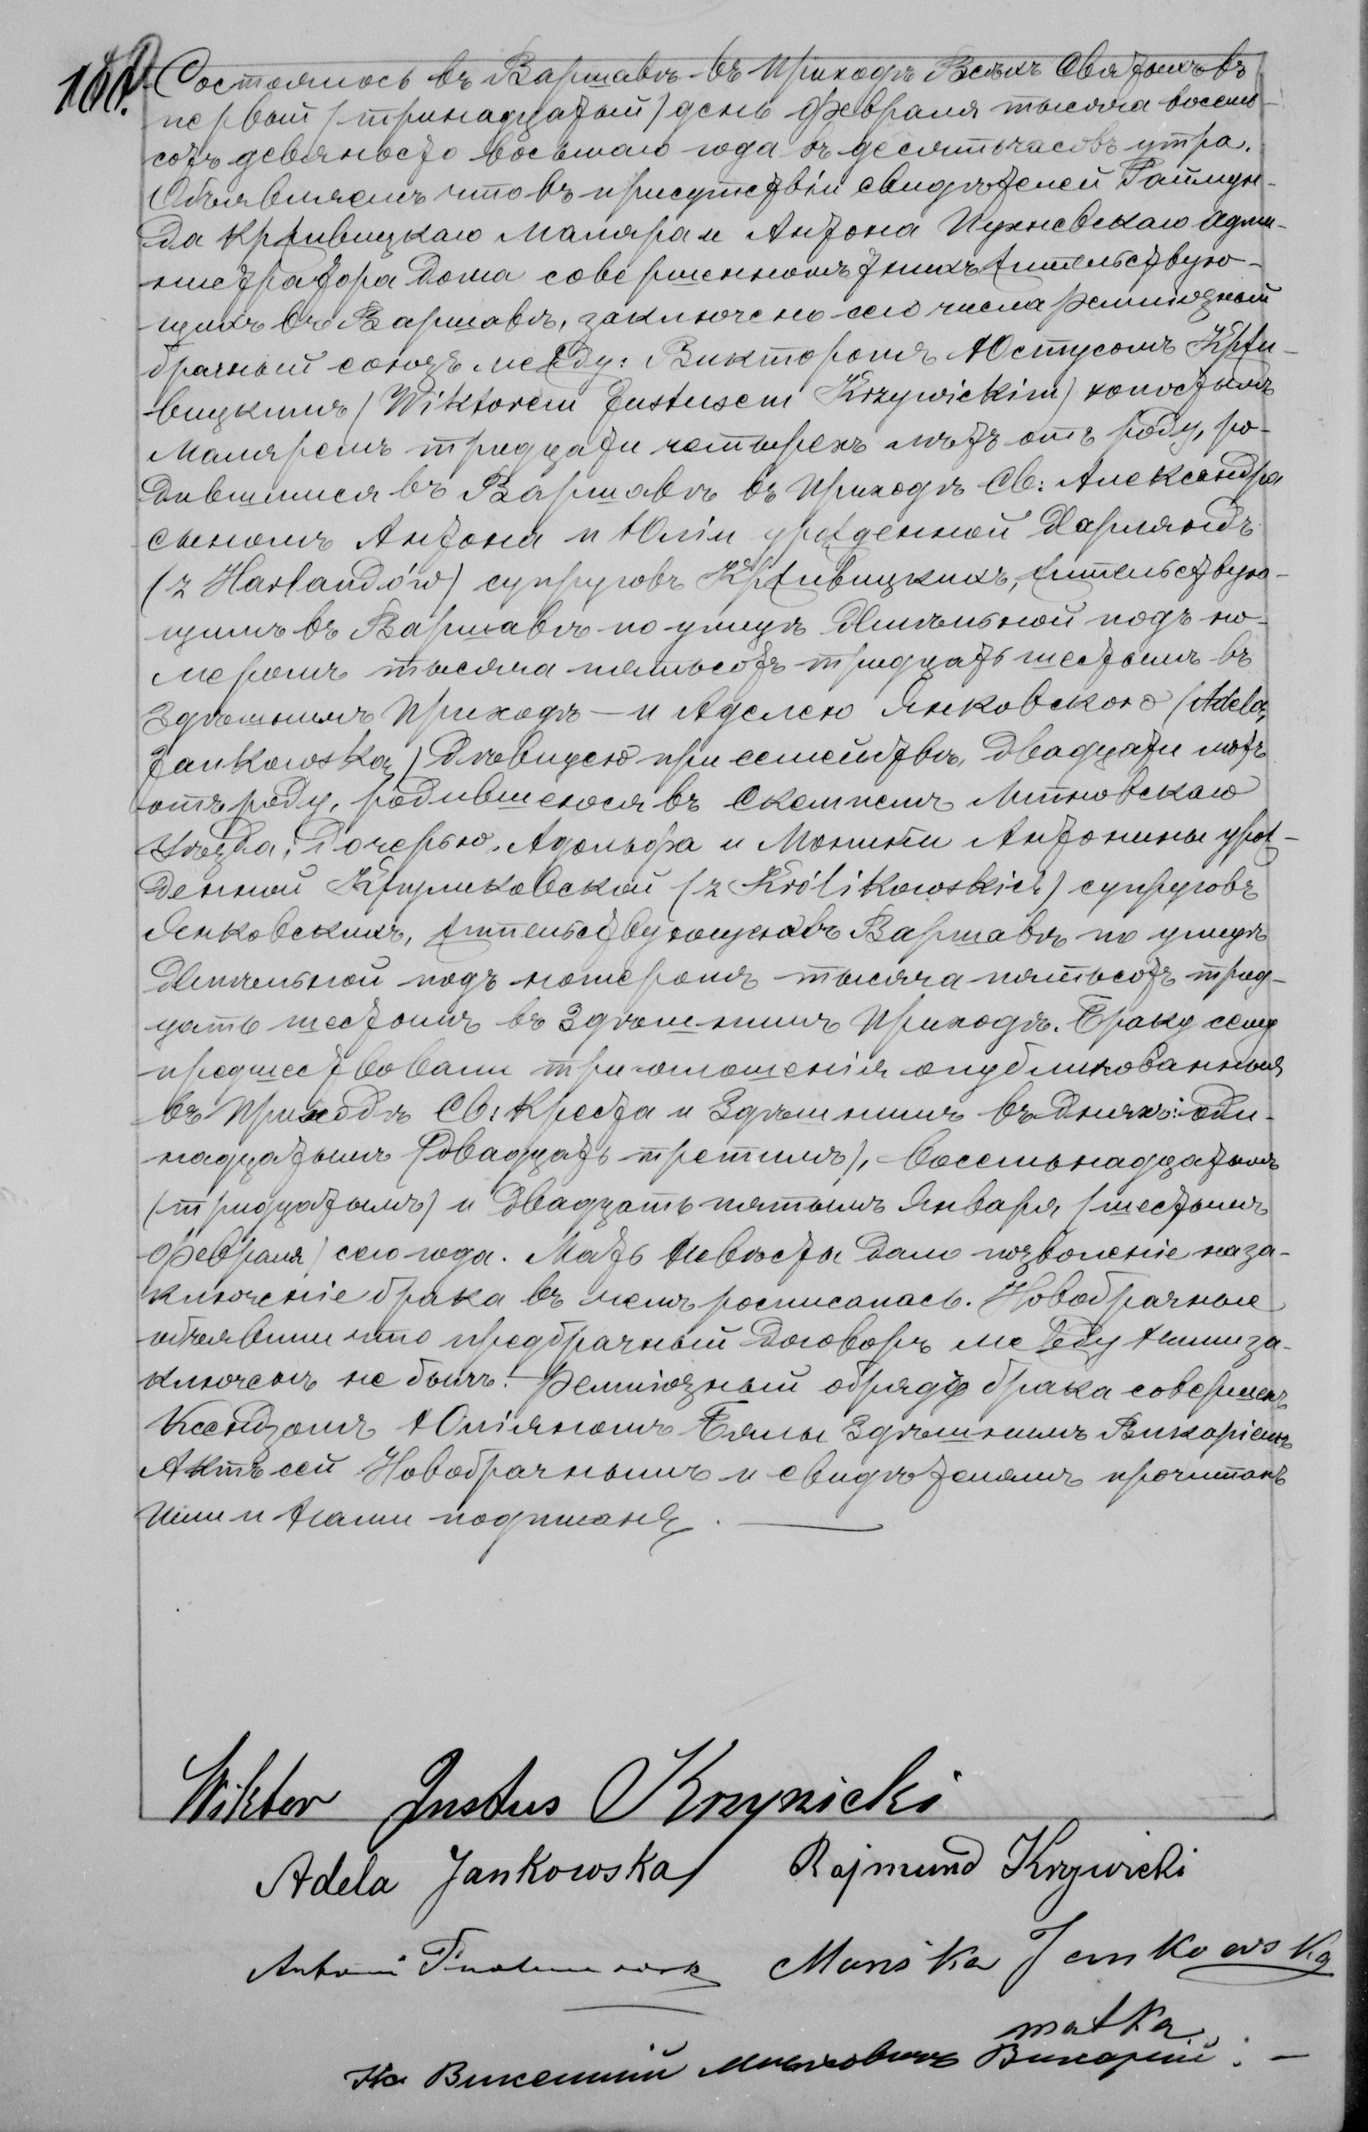 100. Состоялось въ Варшавѣ въ Приходѣ Всѣхъ Святыхъ въ
первый (тринадцатый) день Февраля тысяча восемь-
сотъ девяносто восьмаго года въ десять часовъ утра.
Объявляемъ что въ присутствіи свидѣтелей Раймун-
да Крживицкаго Маляра и Антона адми-
нистратора Дома совершеннолѣтнихъ жительствую-
щихъ въ Варшавѣ, заключено сего числа религіозный
брачный союзъ между: Викторомъ Юстусомъ Кржи-
вицкимъ (Wiktorem Justusem Krzywickim) холостымъ
Маляремъ тридцати четырехъ лѣтъ отъ роду, ро-
дившимся въ Варшавѣ въ Приходѣ Св: Александра
сыномъ Антона и Юліи урожденной Харляндъ
(z Harlandów) супруговъ Крживицкихъ, жительствую-
щимъ въ Варшавѣ по улицѣ подъ но-
меромъ тысяча пятьсотъ тридцать шестымъ въ
Здѣшнимъ Приходѣ — и Аделею Янковскою (Adelą
Jankowską) Дѣвицею при семействѣ, двадцати лѣтъ
отъ роду, родившеюся въ Скемпемъ Липновскаго
Уѣзда, Дочерью Адольфа и Моники Антонины урож-
денной Круликовской (z Królikowskich) супруговъ
Янковскихъ, жительствующею въ Варшавѣ по улицѣ
подъ номеромъ тысяча пятьсотъ трид-
цать шестымъ въ Здѣшнимъ Приходѣ. Браку сему
предшествовали три оглашенія опубликованныя
въ Приходѣ Св: Креста и Здѣшнимъ въ Дняхъ: оди-
надцатымъ (двадцать третимъ), восемьнадцатымъ
(тридцатымъ) и двадцать пятымъ Января (шестымъ
Февраля) сего года. Мать Невѣсты дало позволеніе на за-
ключеніе брака въ немъ росписалась. Новобрачные
объявили что предбрачный договоръ между ними за-
ключенъ не былъ. Религіозный обрядъ брака совершенъ
Ксендзомъ Юліяномъ Бялы Здѣшнимъ Викаріемъ
Актъ сей Новобрачнымъ и свидѣтелямъ прочитанъ
Ими и Нами подписанъ.
Wiktor Justus Krzywicki
Adela Jankowska Rajmund Krzywicki
Antoni Monika Jankowska
matka
Кс Викентій Викарій: